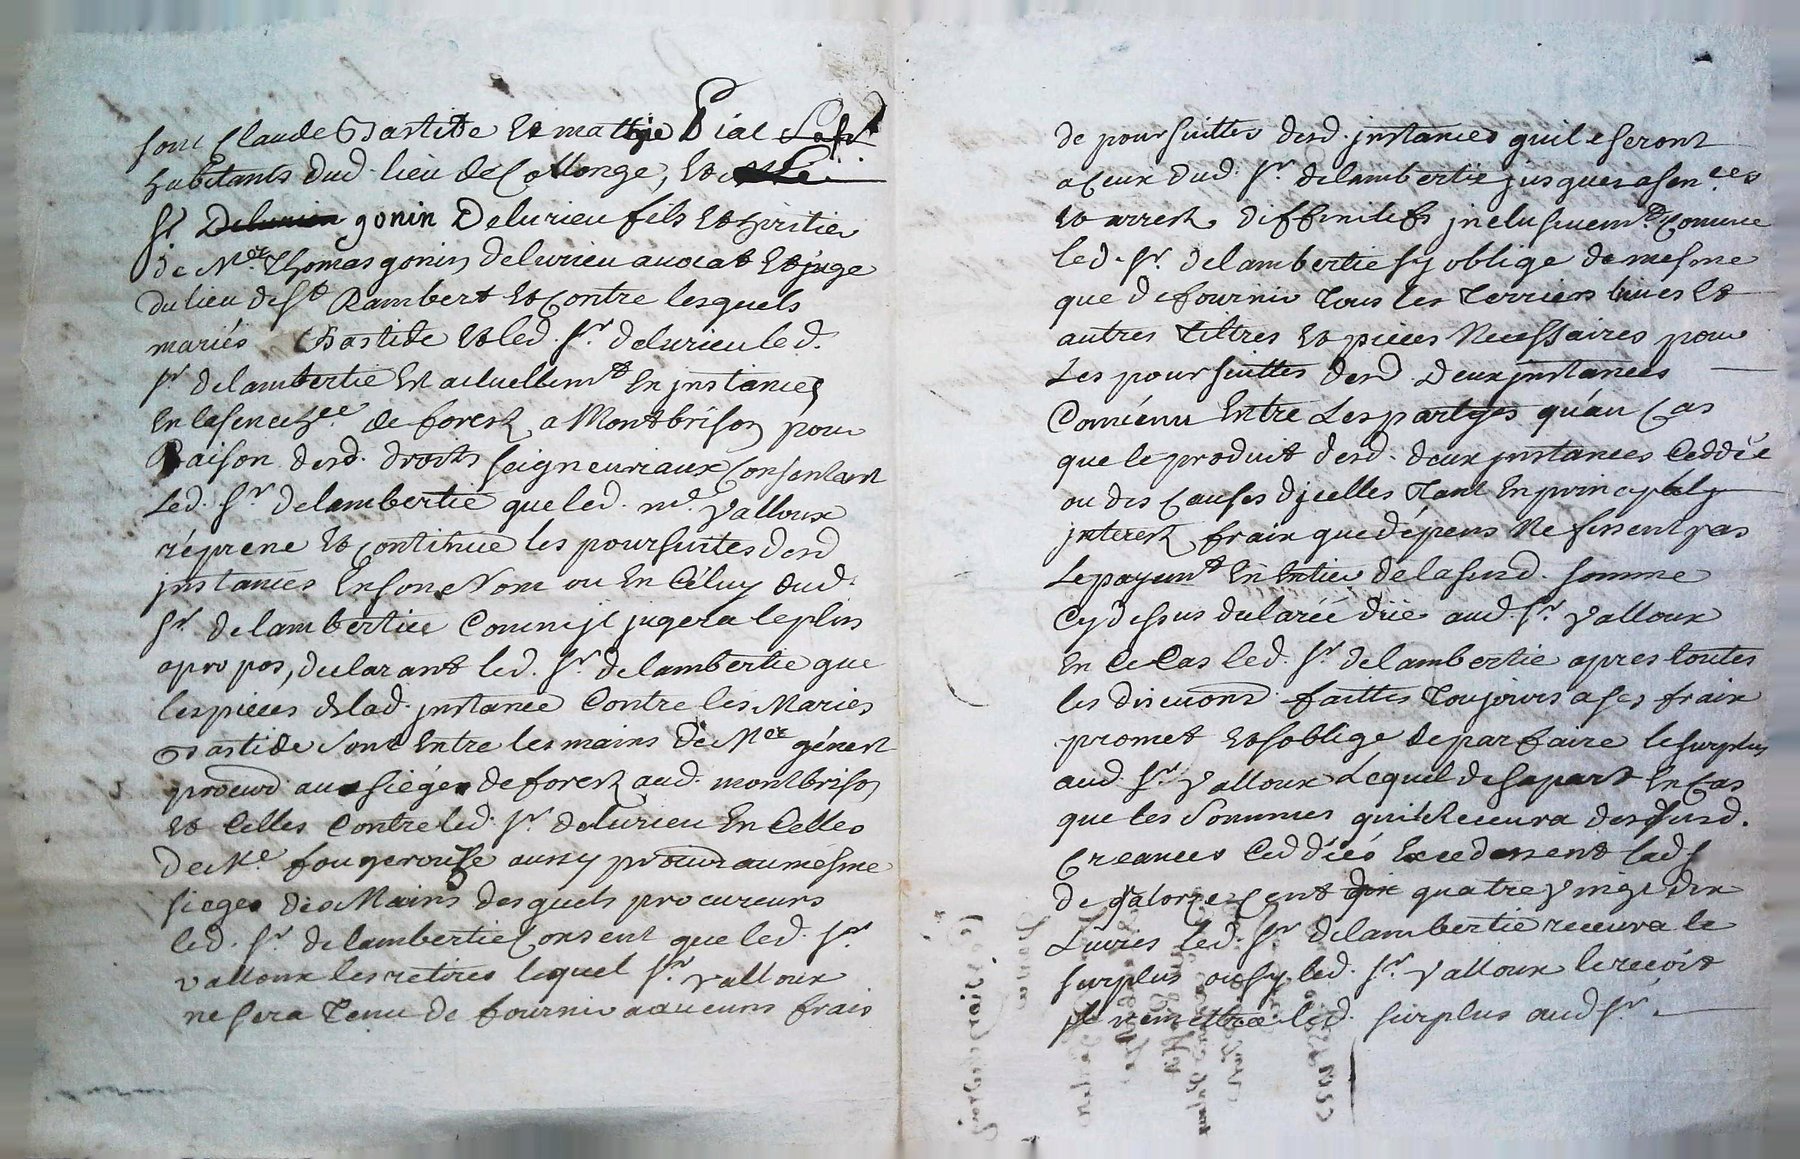 sont Claude Bastide et mathie Pial
habitants dud. lieu de Collonge, et
Sr. gonin Delurieu fils et hiritier
de Mer. Thomas gonin delurieu avocat et juge
du lieu de St Rambert et Contre lesquels
mariés Bastide et led. Sr. delurieu led.
Sr delambertie est actuellemt. en instances
en la senechée. de forest a Montbrison pour
Raison desd. droits seigneuriaux Consentant
Led. Sr. delambertie que led. md. Valloux
réprene et continue les poursuites desd
instances en son Nom ou en Céluy dud.
Sr. delambertie Comme jl jugera le plus
apropos, declarant led. Sr. delambertie que
les pieces de lad. jnstance Contre les Mariés
Bastide sont entre les mains de Mer génest
procurd. au siége de forest aud. montbrison
et Celles Contre led. Sr. delurieu en Celles
de Me. fougerouse aussy procur au mésme
siege des Mains desquels procureurs
led. Sr. delambertie Consent que led. Sr.
valloux les retires lequel Sr. Valloux
ne sera tenu de fournir aucuns frais
de poursuittes desd. jnstances quil e seront
a Ceux dud. Sr. delambertie jusques a senees
et arrest diffinitifs jnclusivemt. Comme
led. Sr. delambertie sy oblige de mesme
que de fournir tous les terriers livres et
autres tiltres et pieces Necessaires pour
Les poursuittes desd deux jnstances
Convenu Entre Les partyes quau Cas
que le produit desd. deux jnstances Ceddée
ou des Causes djcelles tant en principal
jnterest fraix que dépens Ne fissent pas
Le payemt en entier de la susd. somme
Cy dessus declarée düe aud. Sr. Valloux
En Ce Cas led. Sr. delambertie apres toutes
les discutions faittes toujours a ses fraix
promet et soblige de parfaire le surplus
aud. Sr. Valloux Lequel de sa part en Cas
que les Sommes quil Recevra des susd.
Creances Ceddéés excedassent lad s
de quatorze cent quatre vingt dix
Livres led. Sr. delambertie recevra le
surplus ou sy led. Sr. Valloux le recoit
jl remettra led. surplus aud Sr.